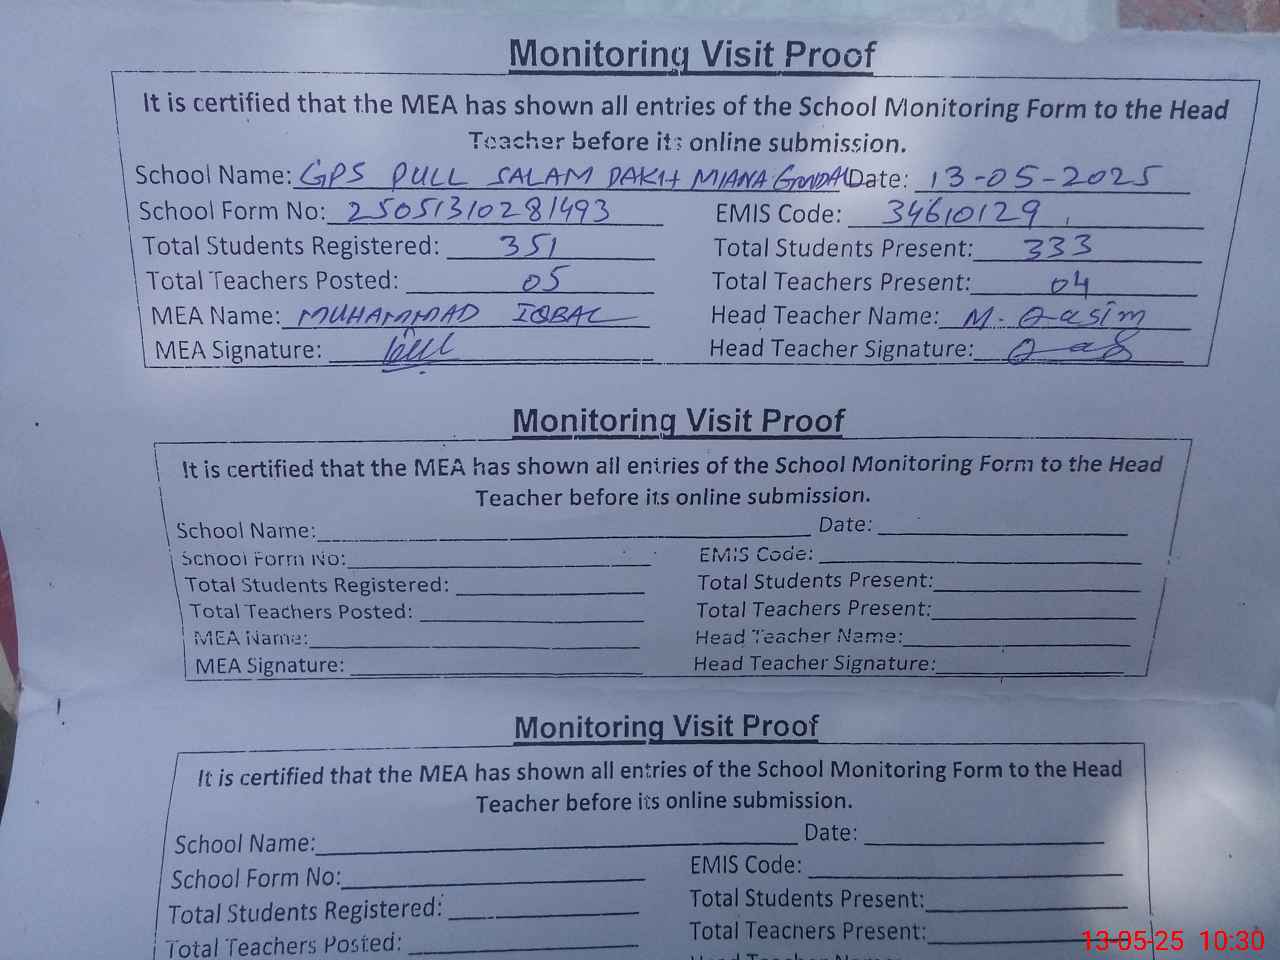 Monitoring Visit Proof
It is certified that the MEA has shown all entries of the School Monitoring Form to the Head
Teacher before its online submission.
School Name: GPS PULL SALAM DAKH MIANA GONDAL Date: 13-05-2025
School Form No: 25051310281493 EMIS Code: 34610129
Total Students Registered: 351 Total Students Present: 333
Total Teachers Posted: 05 Total Teachers Present: 04
MEA Name: MUHAMMAD IQBAL Head Teacher Name: M. Qasim
MEA Signature: Head Teacher Signature:
Monitoring Visit Proof
It is certified that the MEA has shown all entries of the School Monitoring Form to the Head
Teacher before its online submission.
School Name: Date:
School Form No: EMIS Code:
Total Students Registered: Total Students Present:
Total Teachers Posted: Total Teachers Present:
MEA Name: Head Teacher Name:
MEA Signature: Head Teacher Signature:
Monitoring Visit Proof
It is certified that the MEA has shown all entries of the School Monitoring Form to the Head
Teacher before its online submission.
School Name: Date:
School Form No: EMIS Code:
Total Students Registered: Total Students Present:
Total Teachers Posted: Total Teachers Present:
13-05-25 10:30